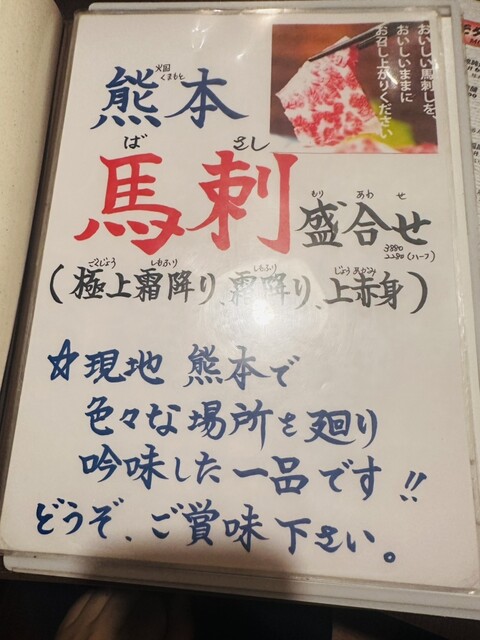 おいしい馬刺しを、
おいしいままに
お召し上がりください
火国 くまもと
熊本
ば さし
馬刺
もり あわ せ
盛合せ
3880
2280(ハーフ)
ごくじょう しもふり しもふり じょう あかみ
(極上霜降り、霜降り、上赤身)
☆現地 熊本で
色々な場所を廻り
吟味した一品です!!
どうぞ、ご賞味下さい。